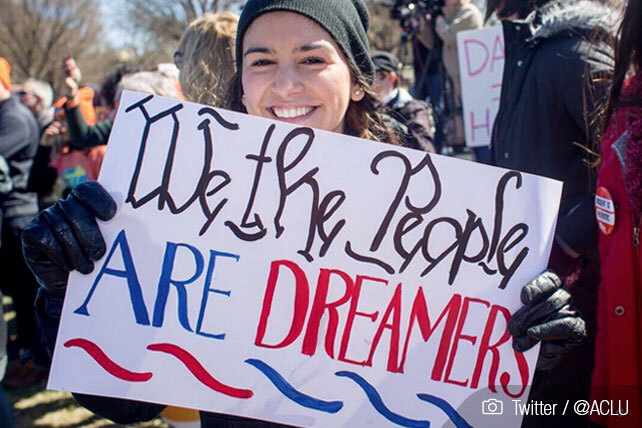 We the People
ARE DREAMERS
DA
H
Twitter / @ACLU